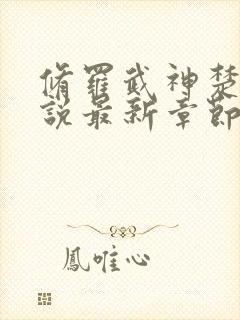 脩羅武神楚
說最新章節
鳳唯心